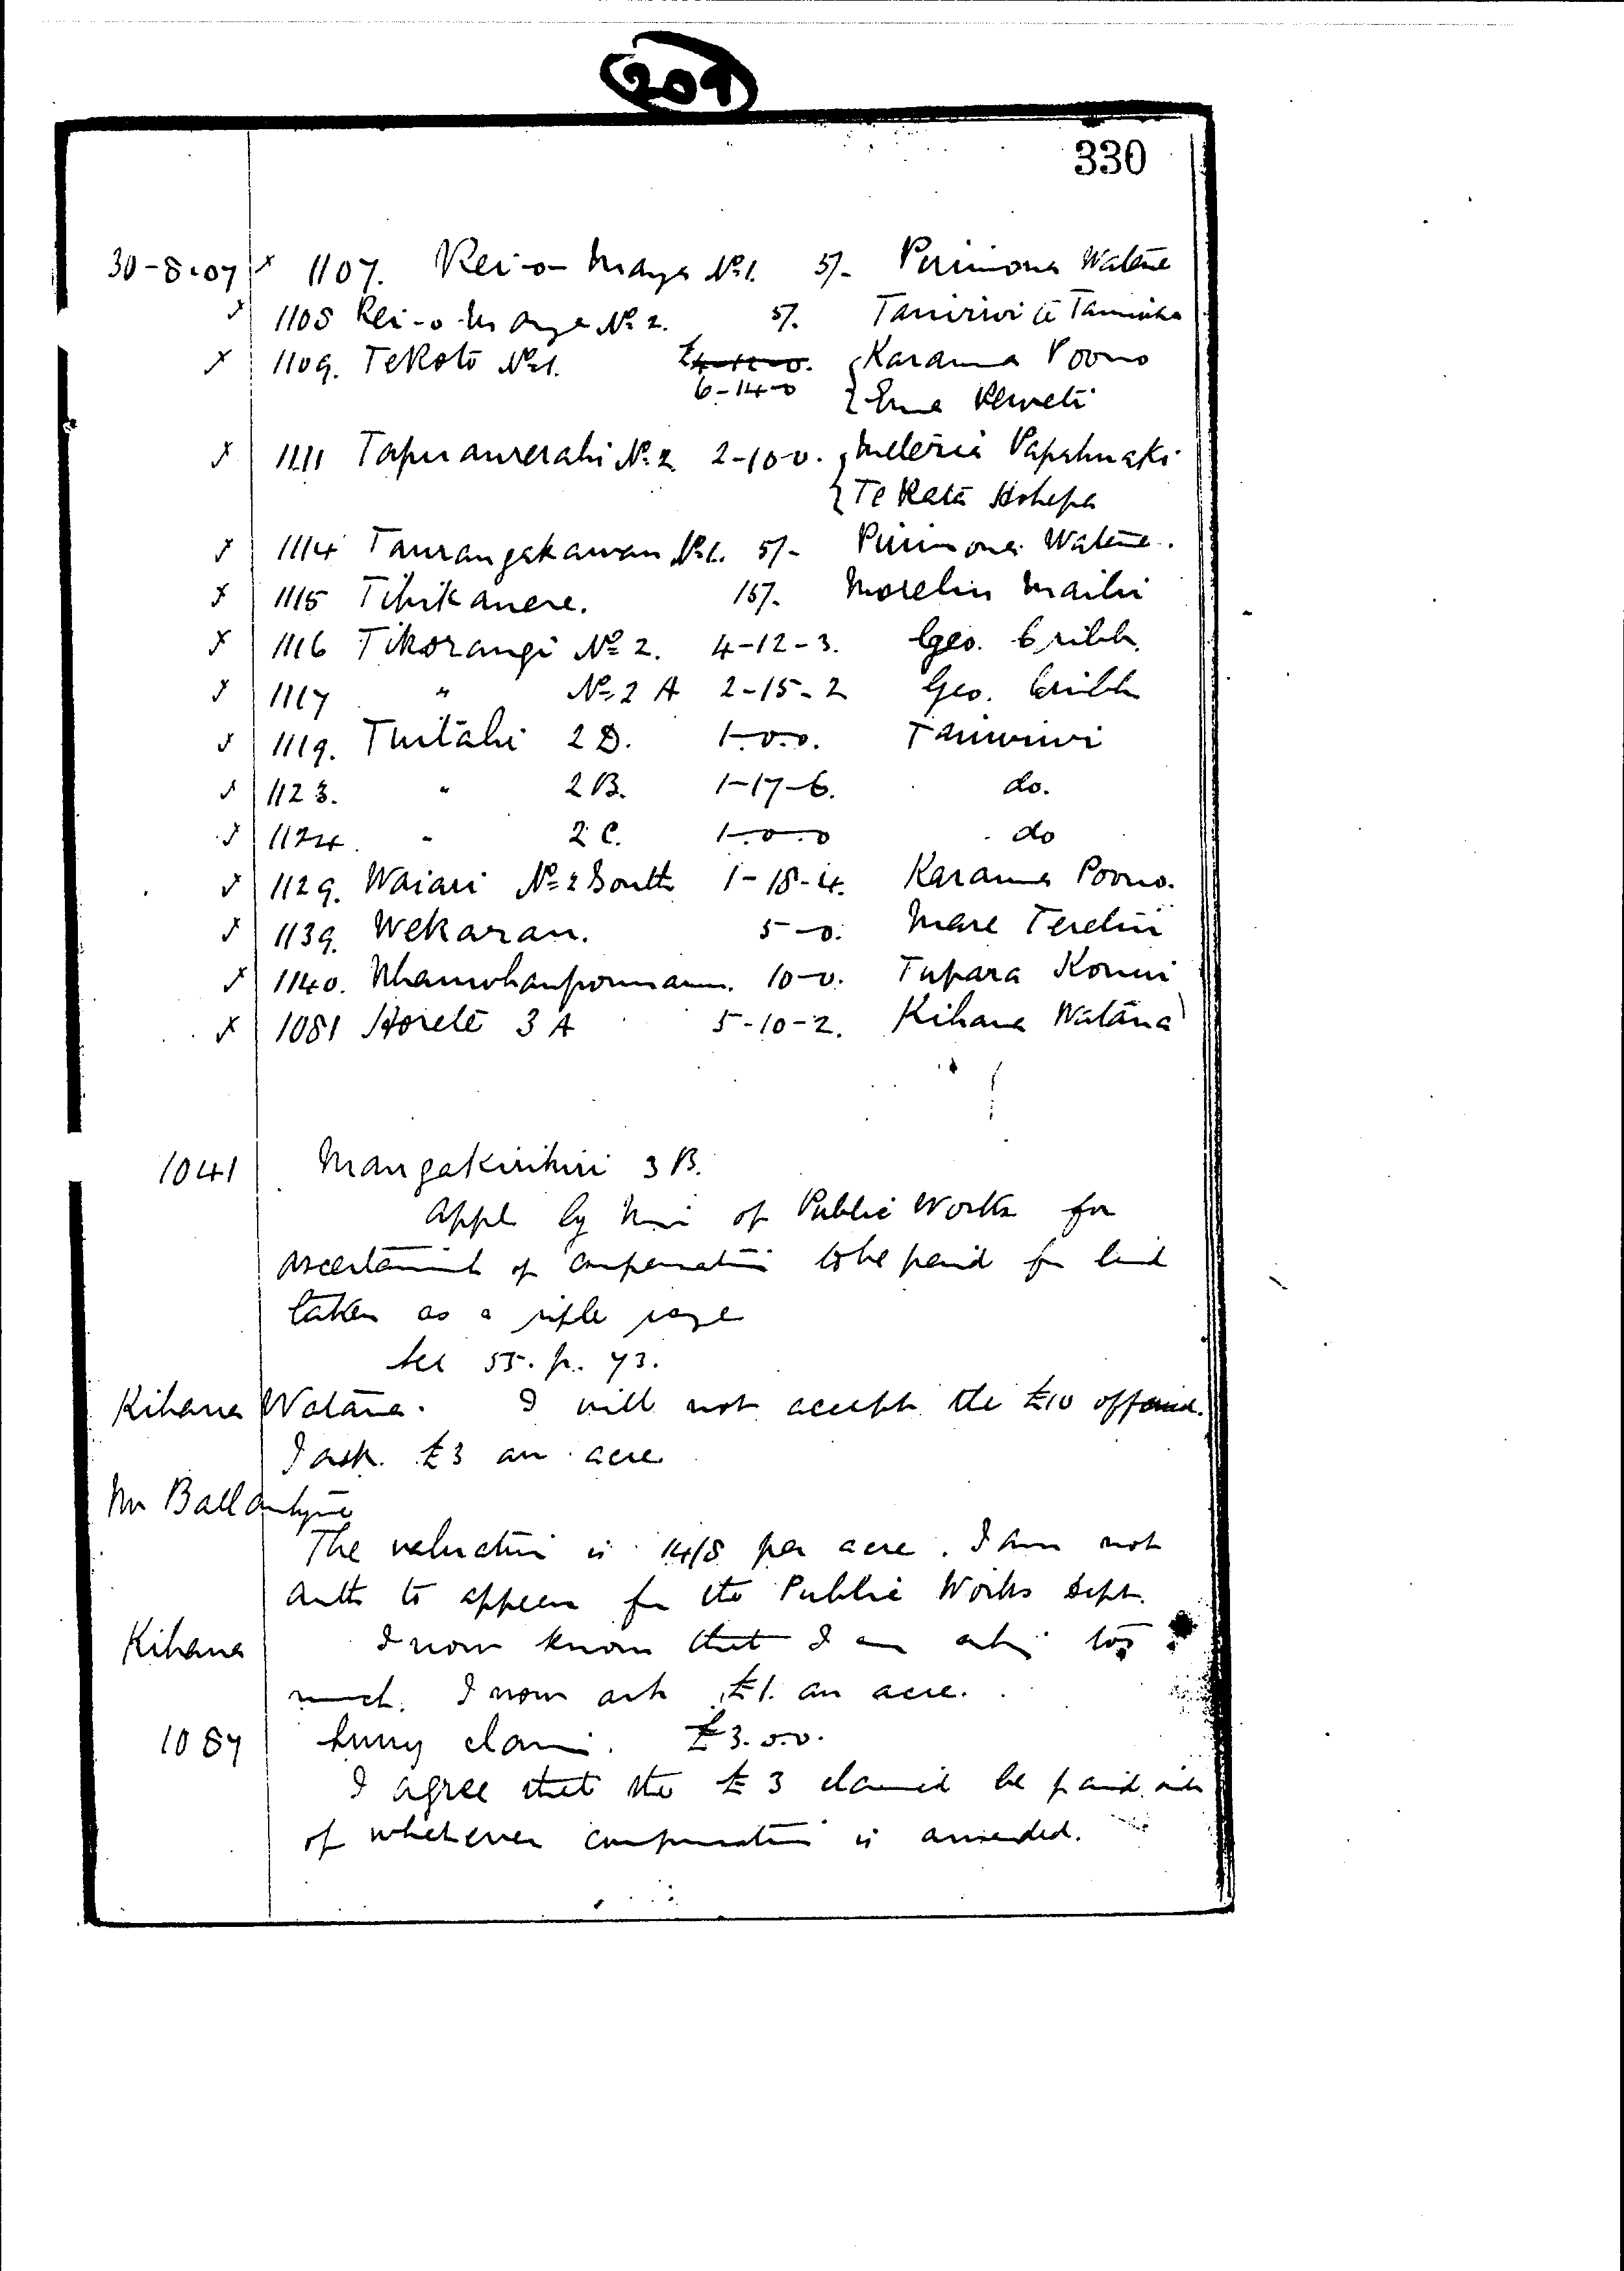 209
330
30-8-07 x 1107. Rei-o-Manga No 1. 5/- Pirimona Watene
x 1108 Rei-o-Manga No 2. 5/. Taniwiwi
x 1109. Te Koto No 1. Karauna Poono
6-14-0
x 1111 No 2 2-10-0.
Te Hohepa
x 1114 Taurangakawau No 1. 5/- Pirimona Watene.
x 1115 Tihikanere. 15/.
x 1116 Tikorangi No 2. 4-12-3. Geo. Cribb.
x 1117 " No 2 A 2-15-2 Geo. Cribb
x 1119. Tuitahi 2 D. 1.0.0. Taniwiwi
x 1123. " 2 B. 1-17-6. do.
x 1124. " 2 C. 1.0.0 do
x 1129. Waiari No 2 South 1-18-4. Karauna Poono.
x 1139. Wekarau. 5-0. Mare Teretiu
x 1140. 10-0. Tupara
x 1081 Horete 3 A 5-10-2. Kihana Watana
1041 Mangakirikiri 3 B.
Appl by Min of Public Works for
ascertainmt of compensation to be paid for land
taken as a rifle range
See 55. p. 73.
Kihana Watana. I will not accept the £10 offered.
I ask £3 an acre
Mr Ballantyne
The valuation is 14/8 per acre. I am not
auth to appear for the Public Works Dept.
Kihana I now know that I am asking too
much. I now ask £1. an acre.
1087 Survey claim. £3.0.0.
I agree that the £3 claimed be paid out
of whatever compensation is awarded.